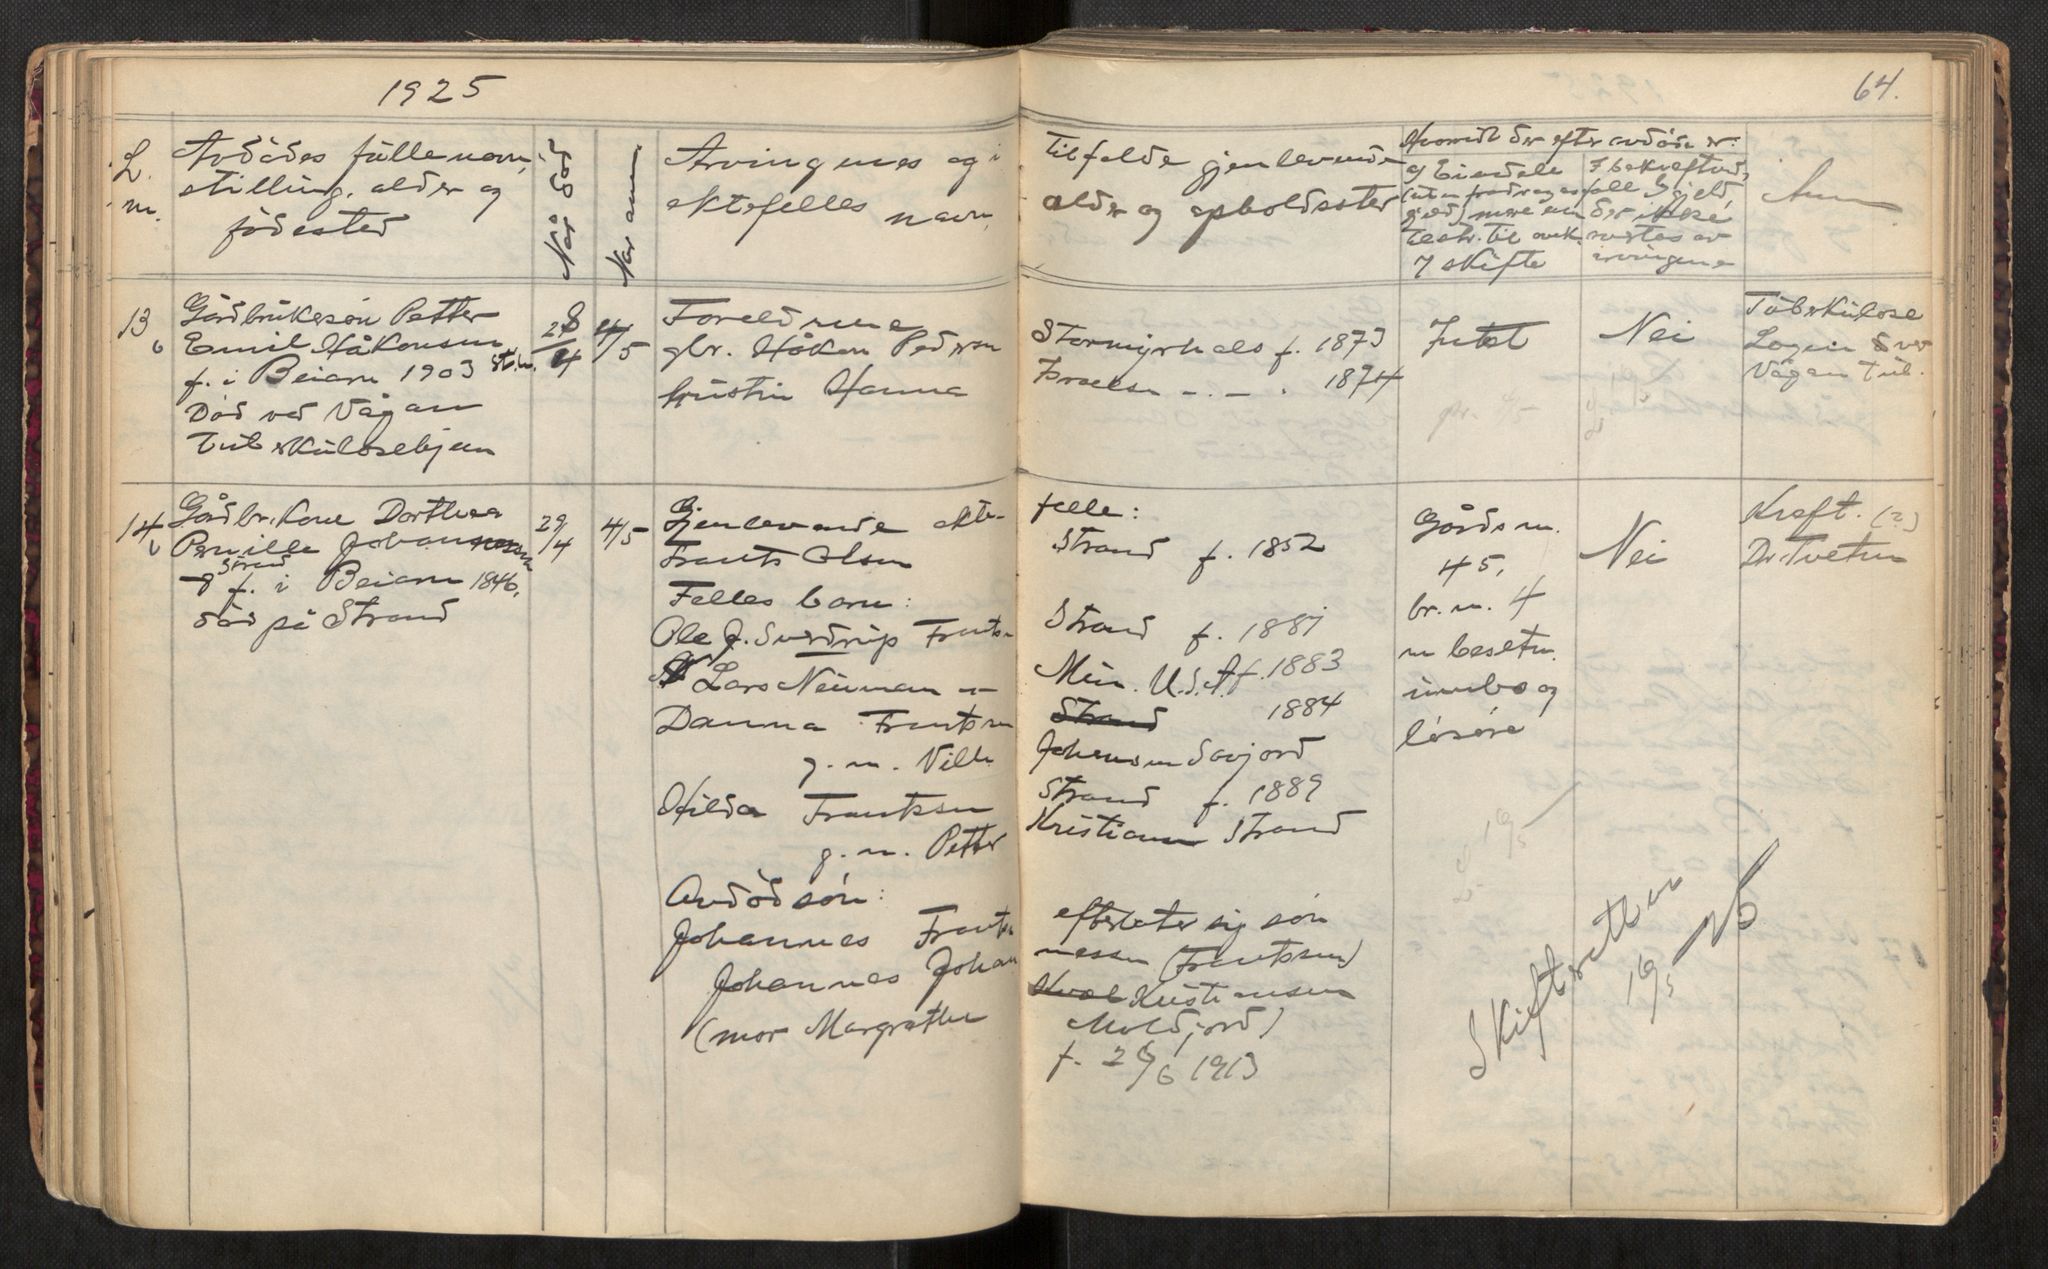 1925
64.
L.
nr.
Avdødes fulle navn,
stilling, alder og
fødested
Når død
Når anm.
Arvingenes og i
ektefelles navn,
tilfelde gjenlevende
alder og opholdssted
Hvorvidt der efter avdøde er:
g Eiendele
(uten fradrag
gjeld) mere enn
til
7 skifte
? bekreftud,
Gjeld,
der ikke
av
arvingene
Anm
13
Gårdbrukersøn Petter
Emil Håkonsen
f. i Beiarn 1903
Død ved Vågan
tuberkulosehjem
28/4
4/5
Foreldrene
gbr. Håkon Pedersen
Kristin Hanna
Stormyrhals f. 1873
Israelsen - . - . 1874
Intet
Nei
Tuberkulose
Legen ved
Vågan tub.
14
Gårdbr.kone Dorthea
Pernille Johannessen
Strand
f. i Beiarn 1846,
død på Strand
29/4
4/5
Gjenlevende ekte-
Frants Olsen
Felles barn:
Ole J. Sverdrup Frants
Lars Neuman -
Danna Frantsen
g. m. Vilh
Hilda Frantsen
g. m. Petter
Avdød søn:
Johannes Frants
Johannes Johan
(mor Margrethe
felle:
Strand f. 1852
Strand f. 1881
Min. U.S.A f. 1883
Strand 1884
Johansen Savjord
Strand f. 1889
Kristiansen Strand
efterlater sig søn
nessen (Frantsen)
Kristiansen
Moldjord)
f. 26/6 1913
Gårdsnr.
45,
br. n. 4
m besetn.
innbo og
løsøre
Nei
Kreft. (?)
Dr. Tveten
16/5
Skifteretten
16/5 - 25